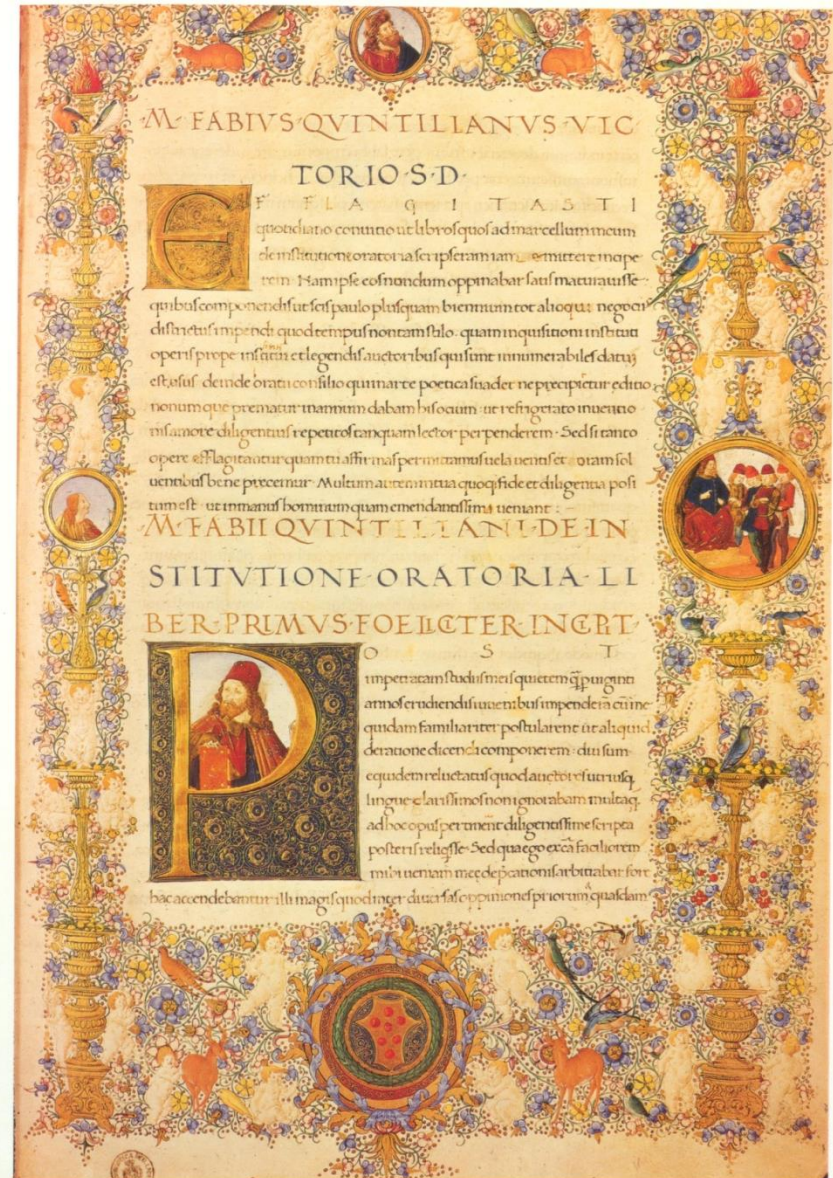 M·FABIVS·QVINTILIANVS·VIC
TORIO·S·D·
EFFLAGITASTI
quotidiano conuitio ut libros quos ad marcellum meum
de institutione oratoria scripseram iam emittere incipe
rem Nam ipse eos nondum oppinabar satis maturuisse
quibus componendis ut scis paulo plus quam biennium tot alioqui negociis
districtus impendi quod tempus non tam stilo quam inquisitioni instituti
operis prope infiniti et legendis auctoribus qui sunt innumerabiles datum
est usus deinde oratii consilio qui in arte poetica suadet ne precipictur editio
nonumque prematur in annum dabam his ocium ut refrigerato inuentio
nis amore diligentius repetitos tanquam lector perpenderem · Sed si tanto
opere efflagitantur quam tu affirmas permittamus uela uentis et oram sol
uentibus bene precemur · Multum autem in tua quoq; fide et diligentia posi
tum est ut in manus hominum quam emendatissimi ueniant :
M·FABII QVINTILIANI·DE·IN
STITVTIONE·ORATORIA·LI
BER·PRIMVS·FOELICITER·INCIPIT·
POST
impetratam studiis meis quietem q̃ p uiginti
annos erudiendis iuuenibus impenderā cũ me
quidam familiariter postularent ut aliquid
de ratione dicendi componerem · diu sum
equidem reluctatus quod auctores utriusq;
lingue clarissimos non ignorabam multa q;
ad hoc opus pertinent diligentissime scripta
posteris reliq̃sse · Sed qua ego ex cã faciliorem
mihi ueniam mee depcationis arbitrabar fore
hac accendebantur illi magis quod inter diuersas oppiniones priorum quasdam